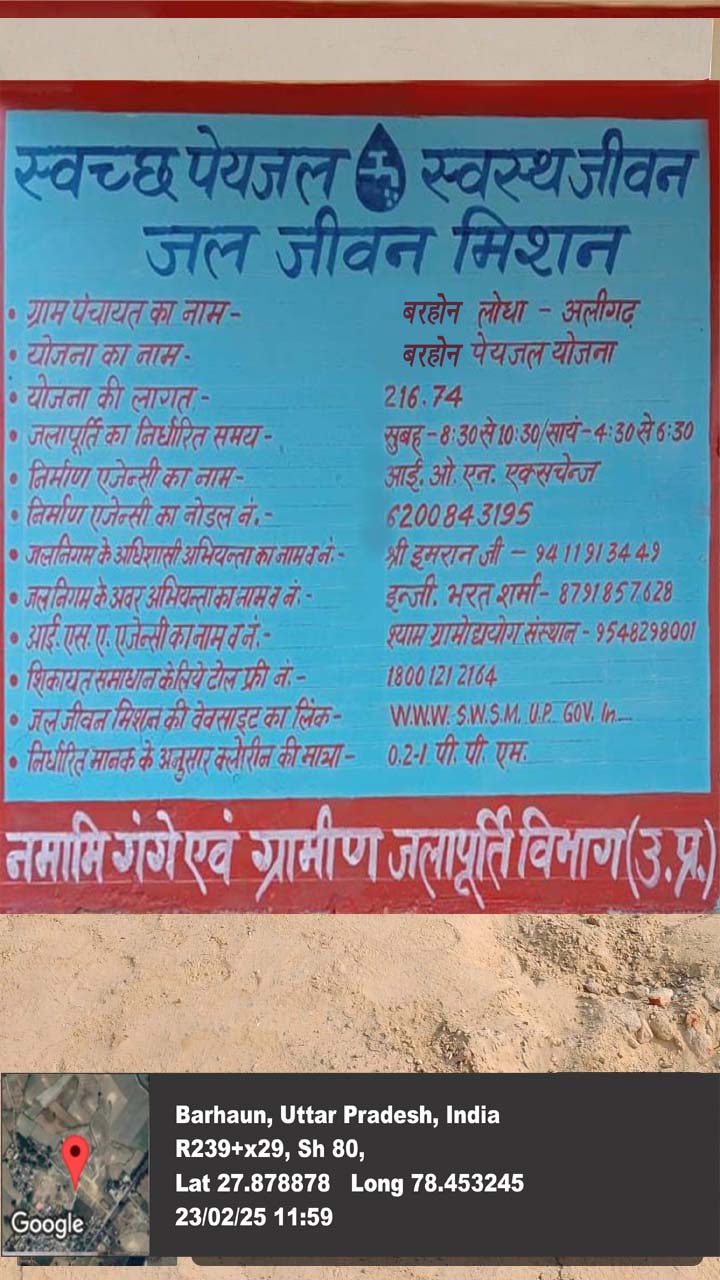 स्वच्छ पेयजल स्वस्थ जीवन
जल जीवन मिशन
• ग्राम पंचायत का नाम - बरहोन लोधा - अलीगढ़
• योजना का नाम - बरहोन पेयजल योजना
• योजना की लागत - 216.74
• जलापूर्ति का निर्धारित समय - सुबह - 8:30 से 10:30/सायं - 4:30 से 6:30
• निर्माण एजेन्सी का नाम - आई. ओ. एन. एक्सचेन्ज
• निर्माण एजेन्सी का नोडल नं. - 6200843195
• जलनिगम के अधिशासी अभियन्ता का नाम व नं. - श्री इमरान जी - 9411913449
• जलनिगम के अवर अभियन्ता का नाम व नं. - इन्जी. भरत शर्मा - 8791857628
• आई. एस. ए. एजेन्सी का नाम व नं. - श्याम ग्रामोद्ययोग संस्थान - 9548298001
• शिकायत समाधान के लिये टोल फ्री नं. - 1800 121 2164
• जल जीवन मिशन की वेवसाइट का लिंक - W.W.W. S.W.S.M. U.P. GOV. In....
• निर्धारित मानक के अनुसार क्लोरीन की मात्रा - 0.2-1 पी. पी. एम.
नमामि गंगे एवं ग्रामीण जलापूर्ति विभाग (उ.प्र.)
Barhaun, Uttar Pradesh, India
R239+x29, Sh 80,
Lat 27.878878 Long 78.453245
23/02/25 11:59
Google